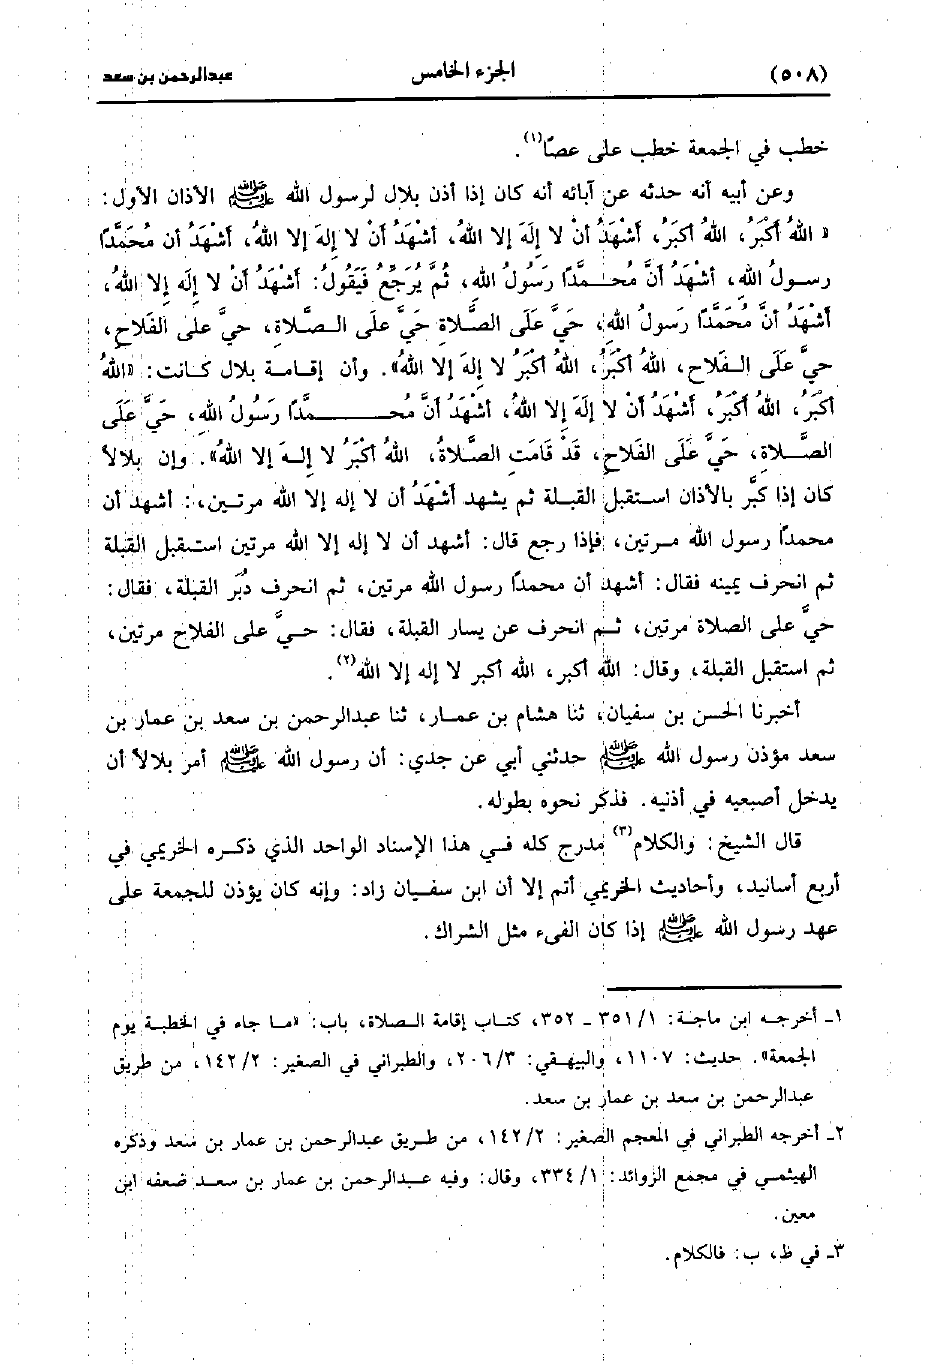 (٥٠٨) الجزء الخامس عبدالرحمن بن سعد
خطب في الجمعة خطب على عصًا(١).
وعن أبيه أنه حدثه عن آبائه أنه كان إذا أذن بلال لرسول الله ﷺ الأذان الأول:
«اللهُ أكْبَرُ، اللهُ أكبَرُ، أشْهَدُ أنْ لا إلَهَ إلا اللهُ، أشهَدُ أنْ لا إلهَ إلا اللهُ، أشهَدُ أن محَمَّدًا
رسـولُ اللهِ، أشْهَدُ أنَّ محُـمَّدًا رَسُولُ اللهِ، ثُمَّ يُرَجِّعُ فَيَقُولُ: أشهَدُ أنْ لا إلَه إلا اللهُ،
أشْهَدُ أنَّ محُمَّدًا رَسولُ اللهِ، حَيَّ عَلَى الصَّلاة حَيَّ عَلَى الـصَّلاة، حيَّ على الفَلاحِ،
حيَّ عَلَى الـفَلاحِ، اللهُ أكْبَرُ، اللهُ أكْبَرُ لا إلهَ إلا اللهُ». وأن إقـامـة بلال كـانت: «اللهُ
أكبَرُ، اللهُ أكْبَرُ، أشْهَدُ أنْ لا إلَهَ إلا اللهُ، أشْهَدُ أنَّ محُـــــمَّدًا رَسولُ اللهِ، حَيَّ عَلَى
الصَّــلاة، حَيَّ عَلَى الفَلاحِ، قَدْ قَامَتِ الصَّلاةُ، اللهُ أكْبَرُ لا إلـهَ إلا اللهُ». وإن بلالاً
كان إذا كبَّر بالأذان استقبل القبلة ثم يشهد أشْهَدُ أن لا إله إلا الله مرتـين،: أشهد أن
محمدًا رسول الله مـرتين، فإذا رجع قال: أشهد أن لا إله إلا الله مرتين استـقبل القبلة
ثم انحرف يمينه فقال: أشهد أن محمدًا رسول الله مرتين، ثم انحرف دُبَر القبلة، فقال:
حيَّ على الصلاة مرتين، ثـم انحرف عن يسار القبلة، فقال: حـيَّ على الفلاح مرتين،
ثم استقبل القبلة، وقال: الله أكبر، الله أكبر لا إله إلا الله(٢).
أخبرنا الحسن بن سفيان، ثنا هشام بن عمـار، ثنا عبدالرحمن بن سعد بن عمار بن
سعد مؤذن رسول الله ﷺ حدثني أبي عن جدي: أن رسول الله ﷺ أمر بلالاً أن
يدخل أصبعيه في أذنيه. فذكر نحوه بطوله.
قال الشيخ: والكلام(٣) مدرج كله فـي هذا الإسناد الواحد الذي ذكـره الخريمي في
أربع أسانيد، وأحاديث الخريمي أتم إلا أن ابن سفـيان زاد: وإنه كان يؤذن للجمعة على
عهد رسول الله ﷺ إذا كان الفىء مثل الشراك.
١ـ أخرجـه ابن ماجة: ٣٥١/١ ـ ٣٥٢، كتاب إقامة الـصلاة، باب: «مـا جاء في الخطبـة يوم
الجمعة». حديث: ١١٠٧، والبيهقي: ٢٠٦/٣، والطبراني في الصغير: ١٤٢/٢، من طريق
عبدالرحمن بن سعد بن عمار بن سعد.
٢ـ أخرجه الطبراني في المعجم الصغير: ١٤٢/٢، من طريق عبدالرحمن بن عمار بن سعد وذكره
الهيثمـي في مجمع الزوائد: ٣٣٤/١، وقال: وفيه عـبدالرحمن بن عمار بن سعـد ضعفه ابن
معين.
٣ـ في ظ، ب: فالكلام.